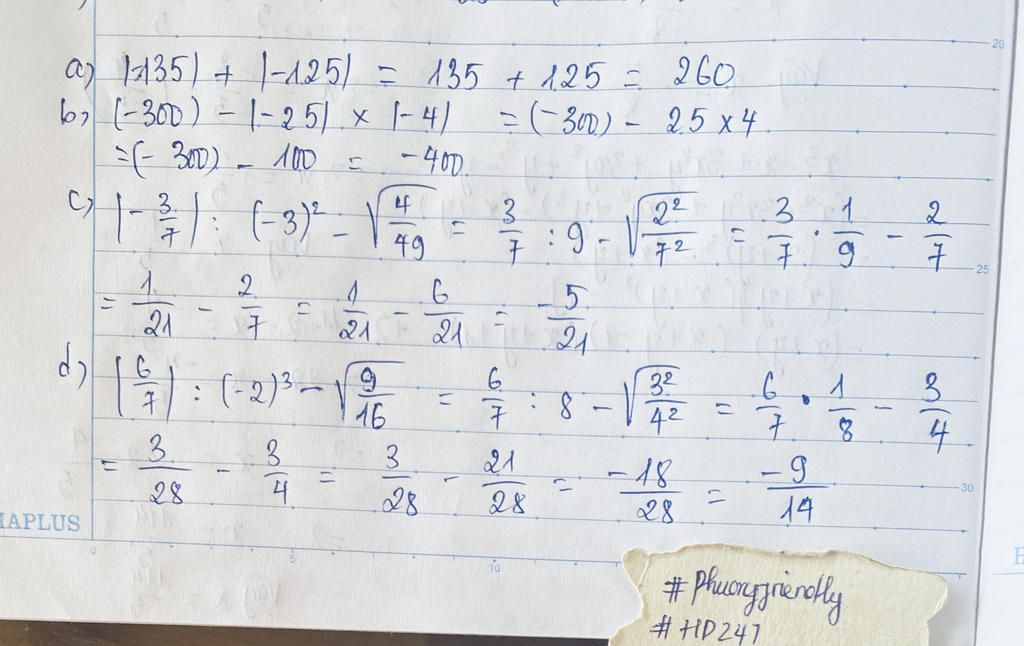 a) |-135| + |-125| = 135 + 125 = 260
b) (-300) - |-25| × |-4| = (-300) - 25 × 4
= (-300) - 100 = -400
c) |-3/7| : (-3)² - √(4/49) = 3/7 : 9 - √(2²/7²) = 3/7 . 1/9 - 2/7
= 1/21 - 2/7 = 1/21 - 6/21 = -5/21
d) |6/7| : (-2)³ - √(9/16) = 6/7 : 8 - √(3²/4²) = 6/7 . 1/8 - 3/4
= 3/28 - 3/4 = 3/28 - 21/28 = -18/28 = -9/14
20
25
30
0 5 10
# HD247